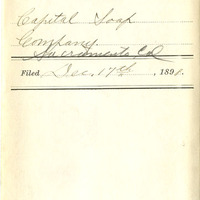 Capital Soap
Company.
Sacramento Cal
Filed Dec. 17th, 1898.